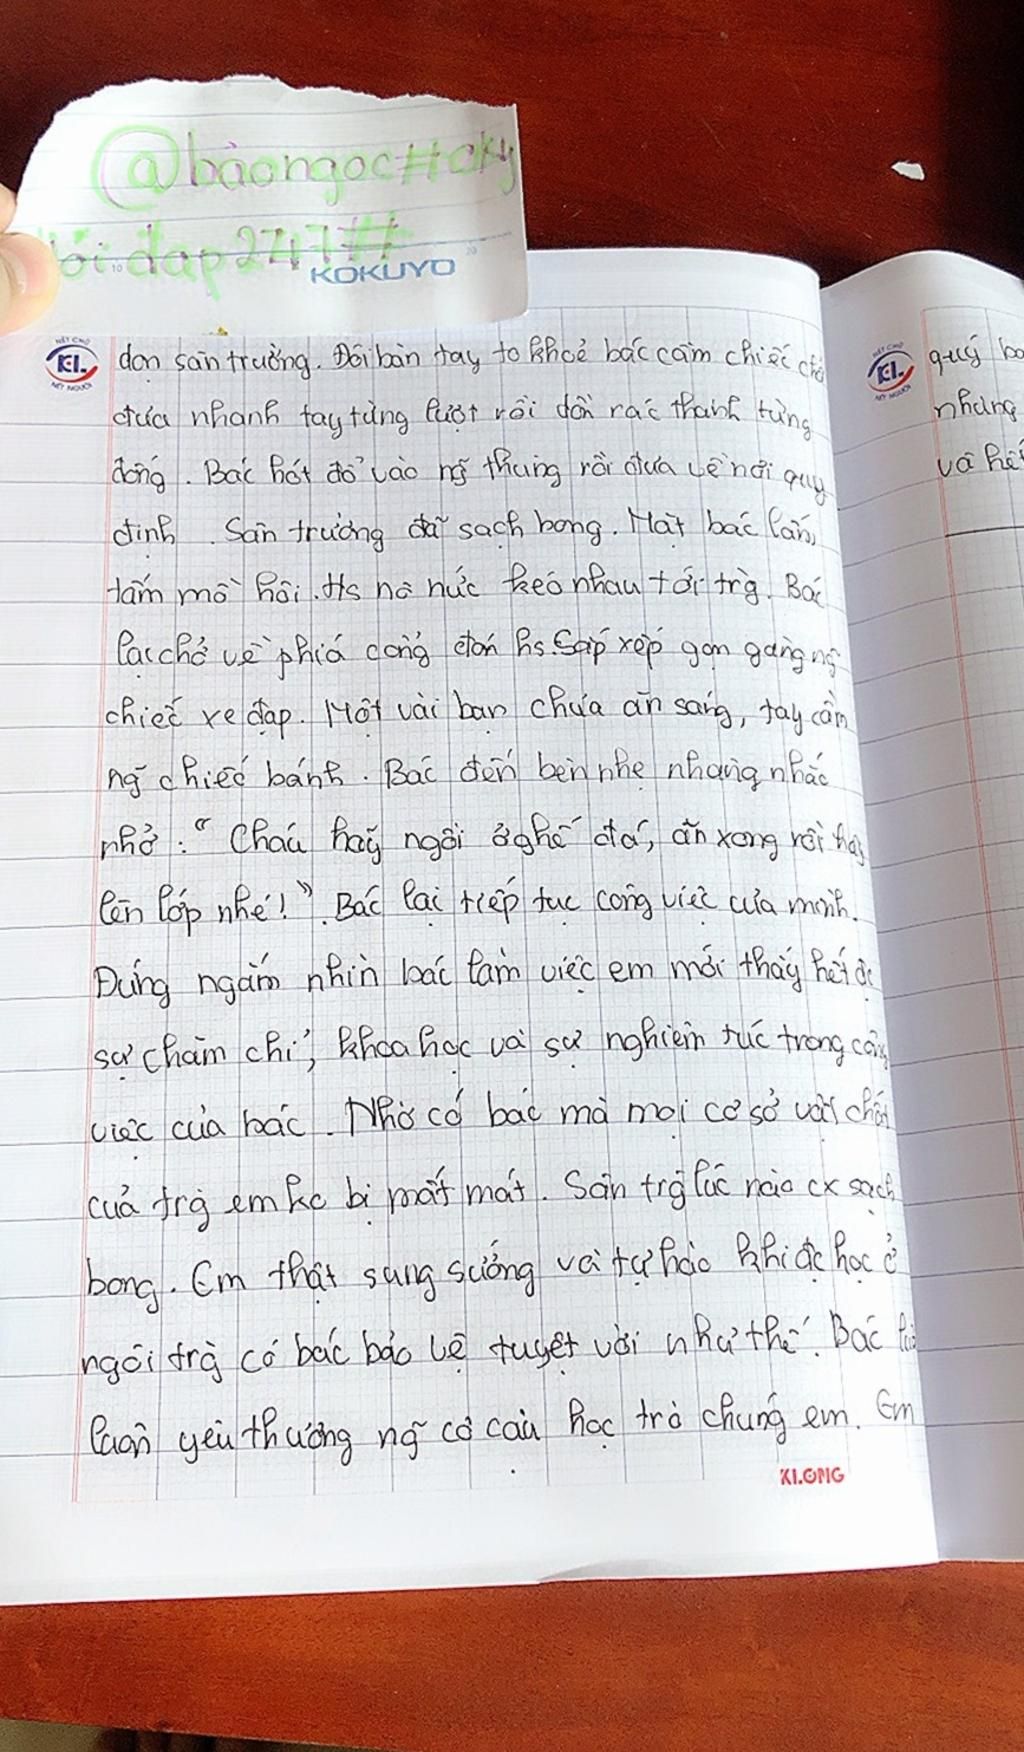 @bảongọc##oky
ỏi đap247##
KOKUYO
NÉT CHỮ
KL
NẾT NGƯỜI
dọn sân trường. Đôi bàn tay to khoẻ bác cầm chiếc chổi
đưa nhanh tay từng lượt rồi dồn rác thành từng
đống. Bác hót đổ vào ng̃ thùng rồi đưa về nơi quy
định. Sân trường đã sạch bong. Mặt bác lấm
tấm mồ hôi. Hs nô nức kéo nhau tới trg̀. Bác
lại chở về phía cổng đón hs. Sắp xếp gọn gàng ng̃
chiếc xe đạp. Một vài bạn chưa ăn sáng, tay cầm
ng̃ chiếc bánh. Bác đến bên nhẹ nhàng nhắc
nhở: "Cháu hãy ngồi ở ghế đá, ăn xong rồi hãy
lên lớp nhé!". Bác lại tiếp tục công việc của mình.
Đứng ngắm nhìn bác làm việc em mới thấy hết đc
sự chăm chỉ, khoa học và sự nghiêm túc trong công
việc của bác. Nhờ có bác mà mọi cơ sở vật chất
của trg̀ em kc bị mất mát. Sân trg̀ lúc nào cx sạch
bong. Em thật sung sướng và tự hào khi đc học ở
ngôi trg̀ có bác bảo vệ tuyệt vời như thế. Bác
luôn yêu thương ng̃ cô cậu học trò chúng em. Em
KLONG
NÉT CHỮ
KL
NẾT NGƯỜI
quý
nhưng
và hế